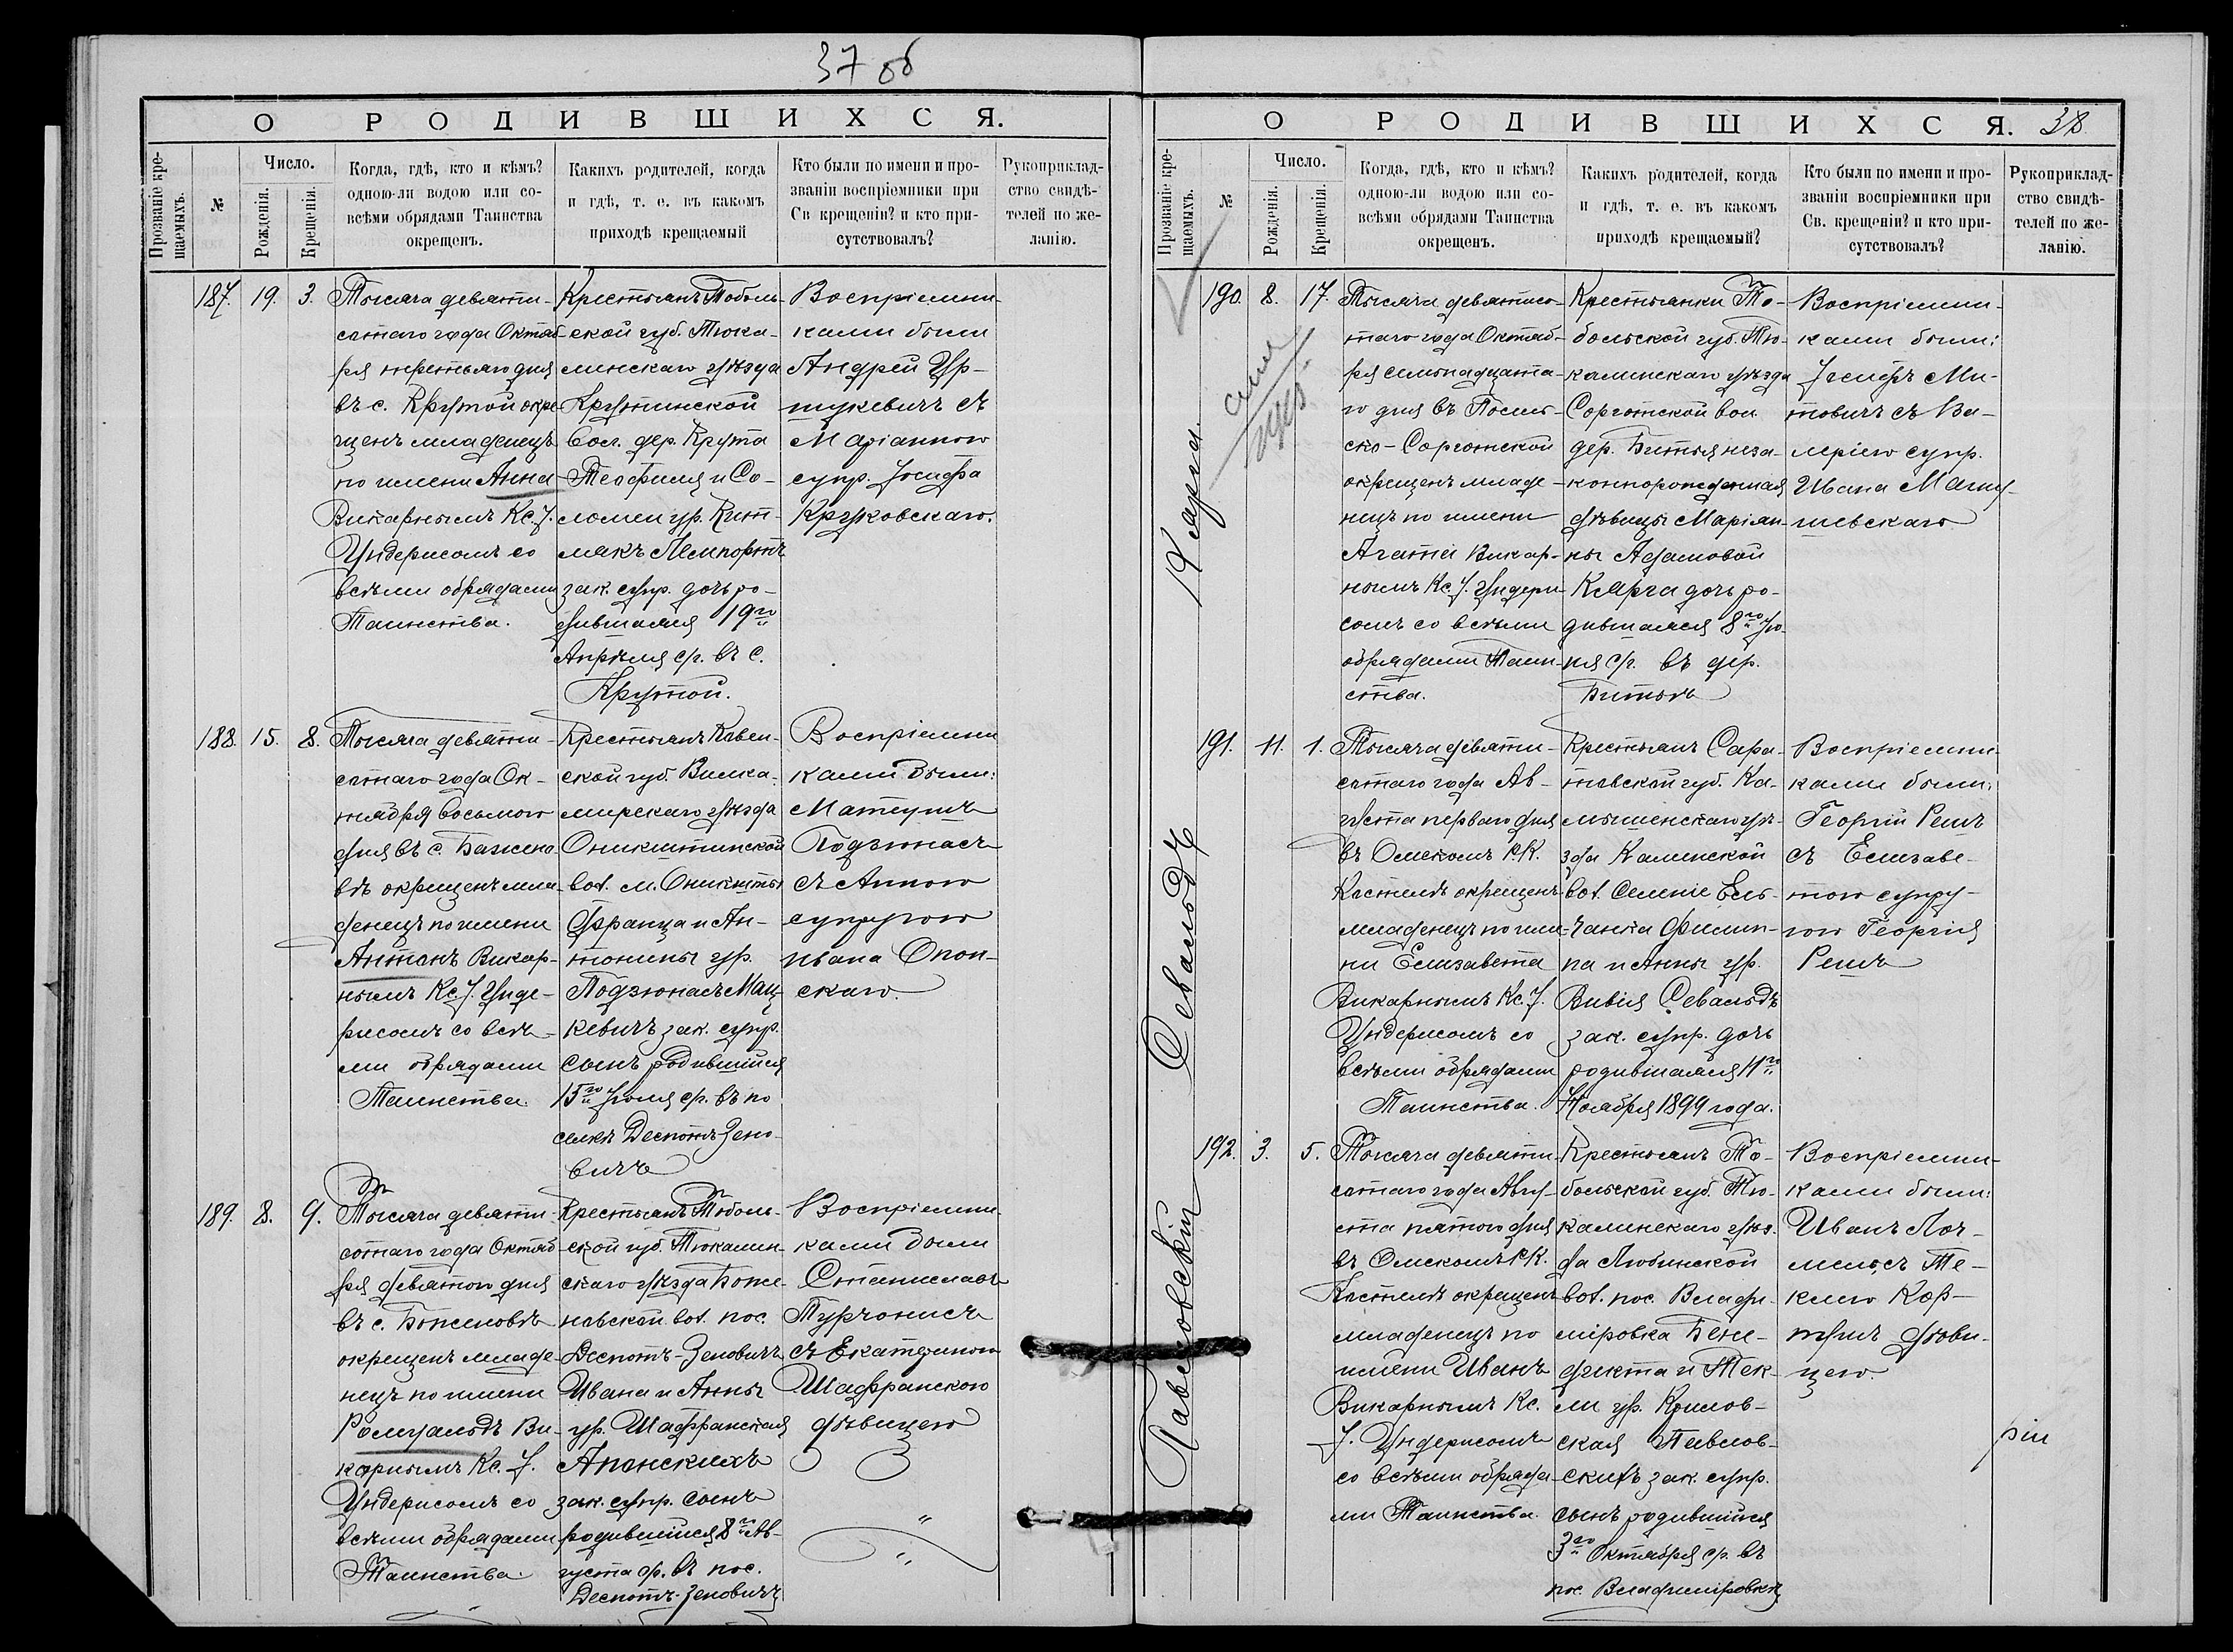 37 об
О РОДИВШИХСЯ.
Прозваніе кре-
щаемыхъ.
№
Число.
Рожденія.
Крещенія.
Когда, гдѣ, кто и кѣмъ?
одною-ли водою или со-
всѣми обрядами Таинства
окрещенъ.
Какихъ родителей, когда
и гдѣ, т. е. въ какомъ
приходѣ крещаемый
Кто были по имени и про-
званіи воспріемники при
Св крещеніи? и кто при-
сутствовалъ?
Рукоприклад-
ство свидѣ-
телей по же-
ланію.
187. 19. 3.
Тысяча девяти-
сотаго года Октяб-
ря третьяго дня
въ с. Крутой окре-
щенъ младенецъ
по имени Анна
Викарнымъ Кс. І.
Ундерисомъ со
всѣми обрядами
Таинства.
Крестьянъ Тоболь-
ской губ. Тюка-
линскаго уѣзда
Крутинской
вол. дер. Крута
Теофиля и Со-
ломеи ур.
зак. супр. дочь ро-
дившаяся 19го
Апрѣля с/г. въ с.
Крутой.
Воспріемни-
ками были
Андрей
съ
Маріанною
супр. Іосифа
Круковскаго.
188. 15. 8.
Тысяча девяти-
сотаго года Ок-
тября восьмого
дня въ с. Бажено-
вѣ окрещенъ мла-
денецъ по имени
Антонъ Викар-
нымъ Кс. І. Унде-
рисомъ со всѣ-
ми обрядами
Таинства.
Крестьянъ Ковен-
ской губ. Вилко-
мирскаго уѣзда
Оникштинской
вол. м. Оникшты
Франца и Ан-
тонины ур.
Подзюнасъ Мац-
кевичъ зак. супр.
сынъ родившійся
15го Іюля с/г. въ по
селкѣ Деспотъ Зено-
вичъ
Воспріемни
ками были:
Матеушъ
Подзюнасъ
съ Анною
супругою
Ивана Опон-
скаго.
189. 8. 9.
Тысяча девяти-
сотаго года Октяб
ря девятого дня
въ с. Боженовѣ
окрещенъ младе-
нецъ по имени
Ромуальдъ Ви-
карнымъ Кс. І.
Ундерисомъ со
всѣми обрядами
Таинства.
Крестьянъ Тоболь-
ской губ. Тюкалин-
скаго уѣзда Боже-
новской вол. пос.
Деспотъ-Зеновичъ
Ивана и Анны
ур. Шафранская
Апонскихъ
зак. супр. сынъ
родившійся 8го Ав-
густа с/г. въ пос.
Деспотъ-Зеновичъ
Воспріемни
ками были
Станиславъ
Турчонисъ
съ Екатериною
Шафранскою
дѣвицею
О РОДИВШИХСЯ. 38
Прозваніе кре-
щаемыхъ.
№
Число.
Рожденія.
Крещенія.
Когда, гдѣ, кто и кѣмъ?
одною-ли водою или со-
всѣми обрядами Таинства
окрещенъ.
Какихъ родителей, когда
и гдѣ, т. е. въ какомъ
приходѣ крещаемый?
Кто были по имени и про-
званіи воспріемники при
Св. крещеніи? и кто при-
сутствовалъ?
Рукоприклад-
ство свидѣ-
телей по же-
ланію.
Клярга.
190. 8. 17.
Тысяча девятисо-
таго года Октяб-
ря семнадцата-
го дня въ Посель-
ско-Саргатской
окрещенъ младе-
нецъ по имени
Агатеи Викар-
нымъ Кс. І. Ундери-
сомъ со всѣми
обрядами Таин-
ства.
Крестьянки То-
больской губ. Тю-
калинскаго уѣзда
Соргатской вол.
дер. Битыя неза-
коннорожденная
дѣвицы Маріан-
ны Адамовой
Клярга дочь ро-
дившаяся 8го Ію-
ня с/г. въ дер.
Битыхъ
Воспріемни-
ками были:
Іосифъ Ми-
товичъ съ Ва-
леріею супр.
Ивана
Севальдъ
191. 11. 1.
Тысяча девяти-
сотаго года Ав-
густа перваго дня
въ Омскомъ Р.К.
Костелѣ окрещенъ
младенецъ по име-
ни Елизавета
Викарнымъ Кс. І.
Ундерисомъ со
всѣми обрядами
Таинства.
Крестьянъ Сара-
товской губ. Ка-
мышенскаго уѣ-
зда Каминской
вол. селеніе Ель-
чанка Филип-
па и Анны ур.
Вивія Севальдъ
зак. супр. дочь
родившаяся 11го
Ноября 1899 года.
Воспріемни-
ками были:
Георгій Решъ
съ Елизаве-
тою супру-
гою Георгія
Решъ
Павловскій
192. 3. 5.
Тысяча девяти-
сотаго года Авгу-
ста пятого дня
въ Омскомъ Р.К.
Костелѣ окрещенъ
младенецъ по
имени Иванъ
Викарнымъ Кс.
І. Ундерисомъ
со всѣми обряда-
ми Таинства.
Крестьянъ То-
больской губ. Тю-
калинскаго уѣз-
да Любинской
вол. пос. Влади-
міровка Бене-
дикта и Тек-
ли ур. Крилов-
ская Павлов-
скихъ зак. супр.
сынъ родившійся
3го Октября с/г. въ
пос. Владиміровкѣ
Воспріемни-
ками были:
Иванъ
съ Те-
клею
дѣви-
цею.